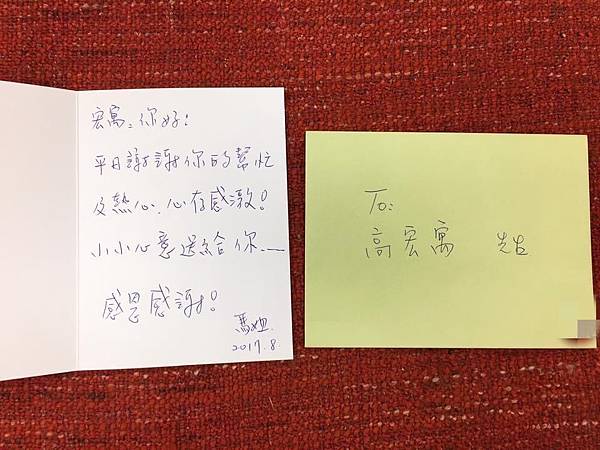 宏寓,你好!
平日謝謝你的幫忙
及熱心,心存感激!
小小心意送給你——
感恩感謝!
馬姐
2017.8.
To:
高宏寓 先生